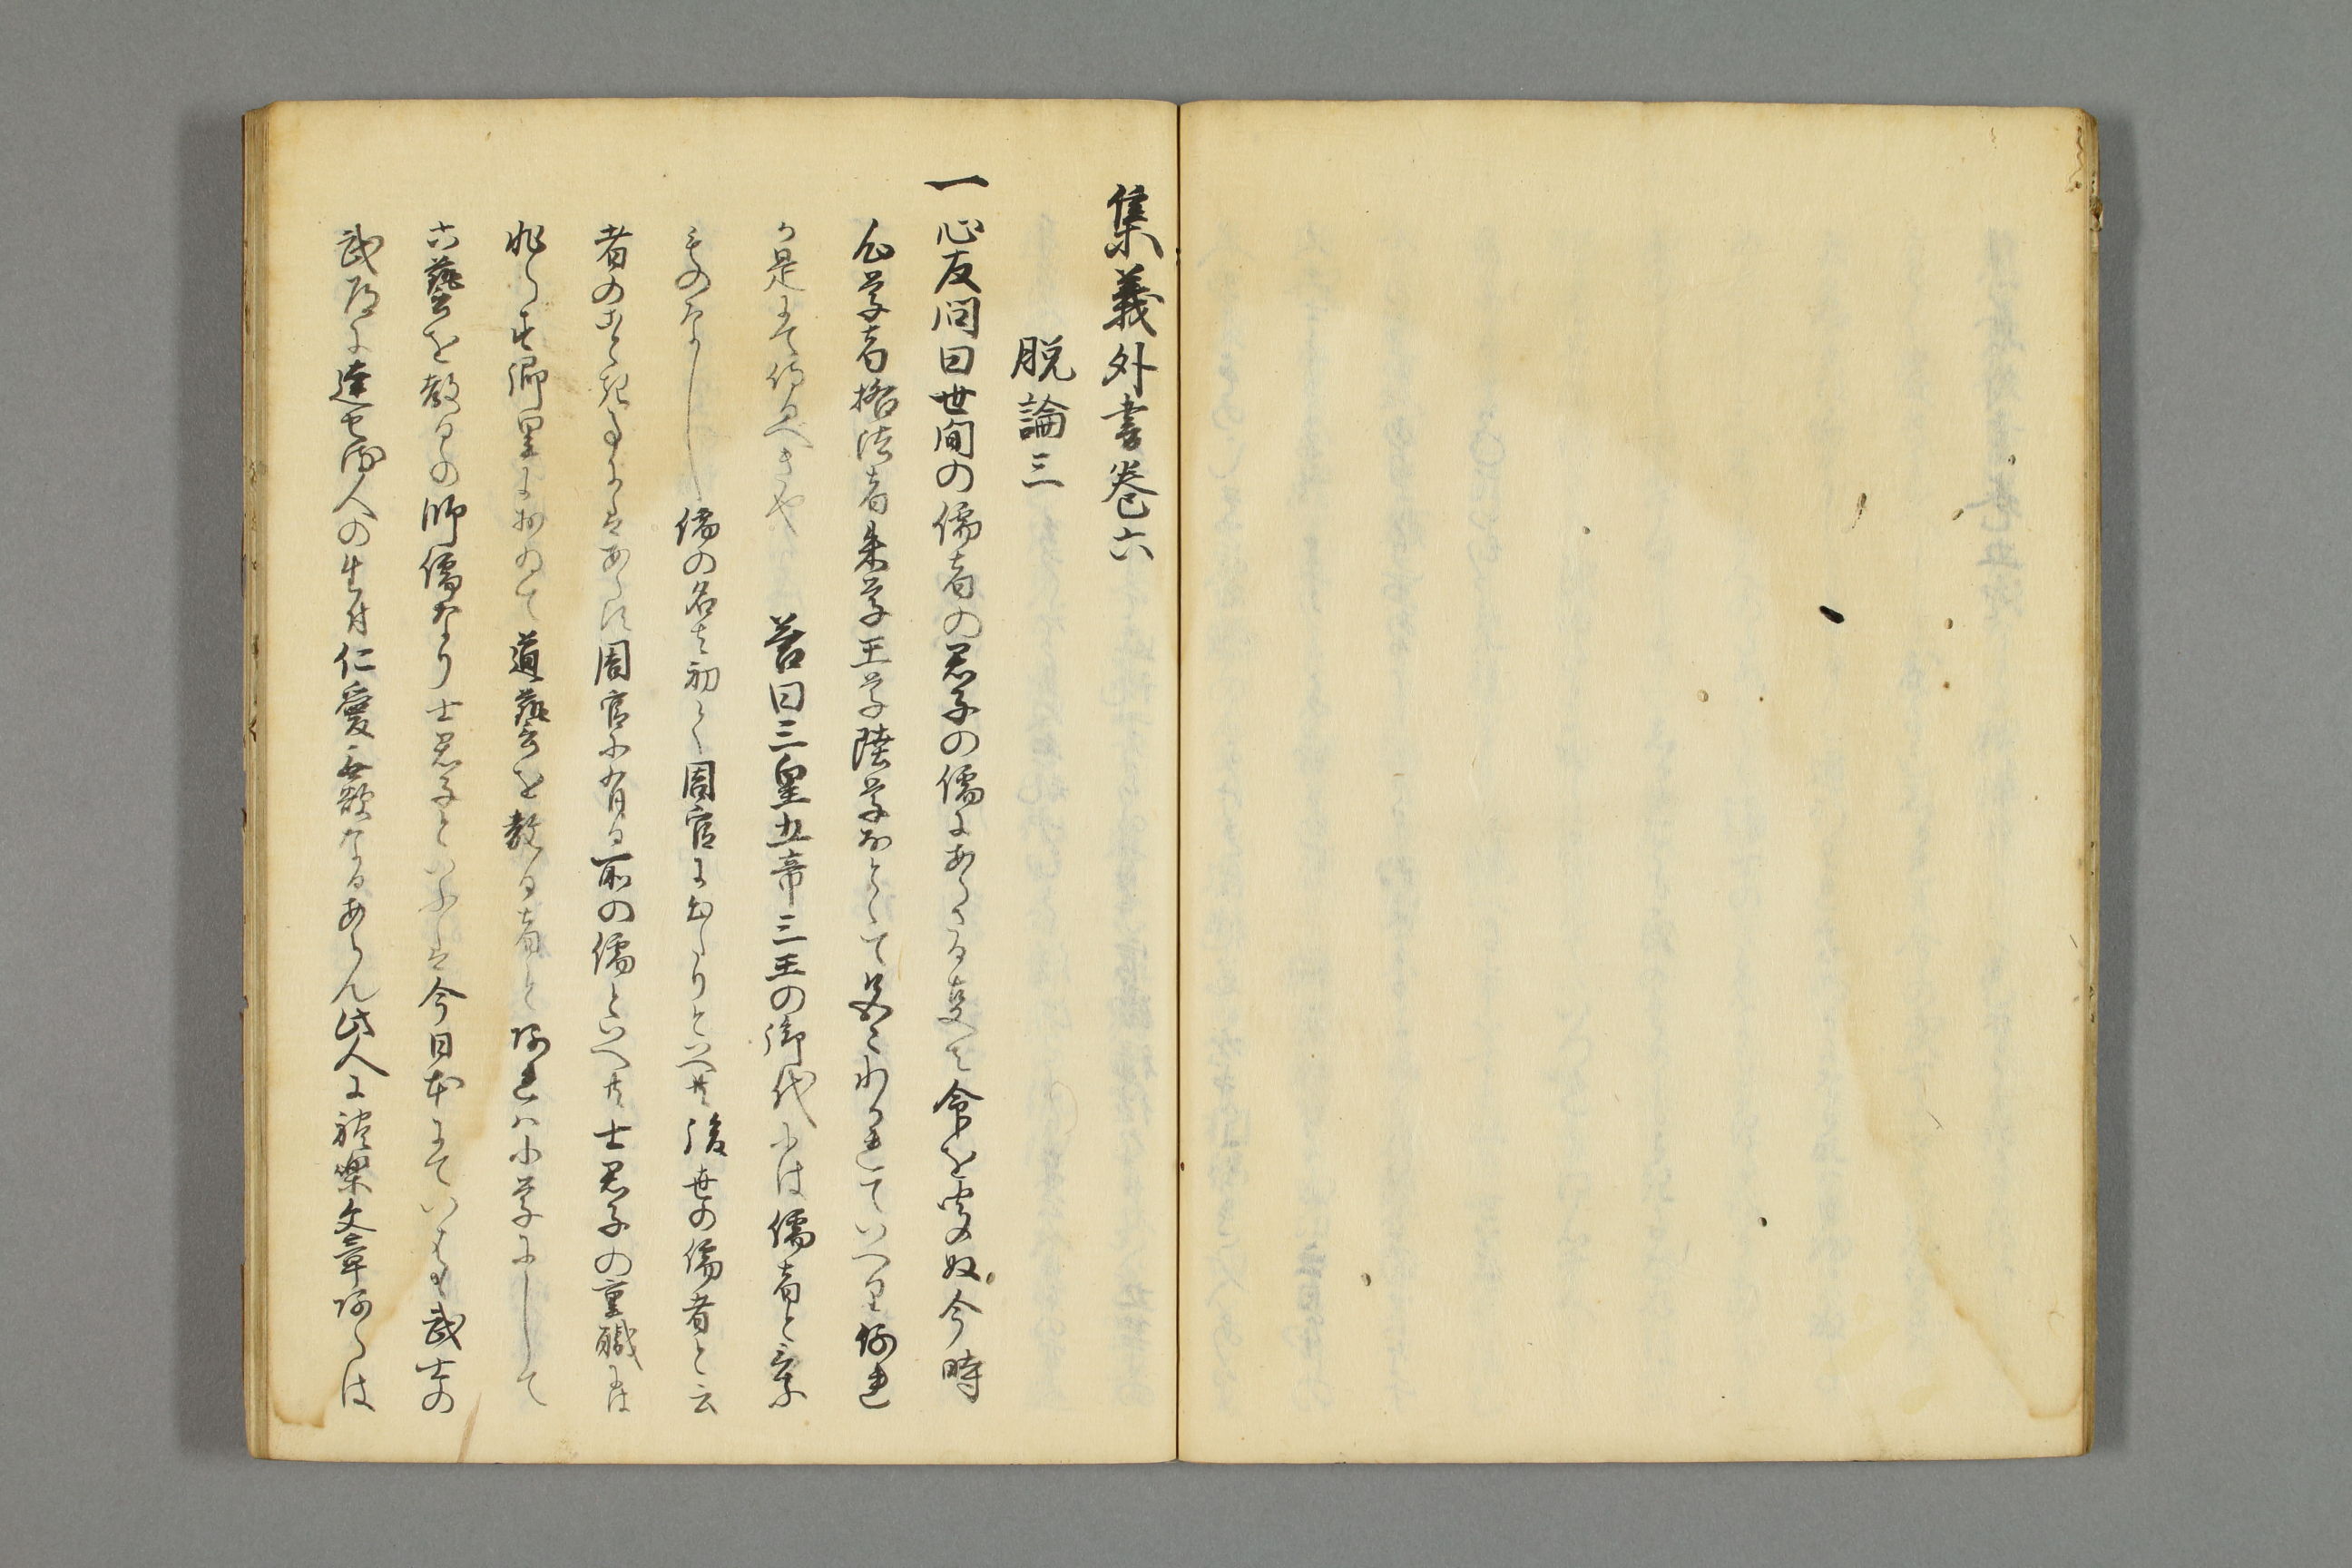 集義外書巻六
脱論三
一心友問曰世間の儒者の君子の儒にあらさる事は命を聞ぬ今時
心学者格法者朱学王学陸学なとゝて品〻わかれていへり何れ
か是にて侍るへきや 答曰三皇五帝三王の御代には儒者と云
ものなし 儒の名は初て周官に出たりといへ共後世の儒者と云
者のことき事にはあらす周官に有る所の儒といへ共士君子の重職には
非らす郷里におゐて道藝を教る者と何れは小学にして
六藝を教るの師儒なり士君子といふは今日本にていはゝ武士の
武道に達せる人の生付仁愛無欲なるあらん此人に礼楽文章あらは